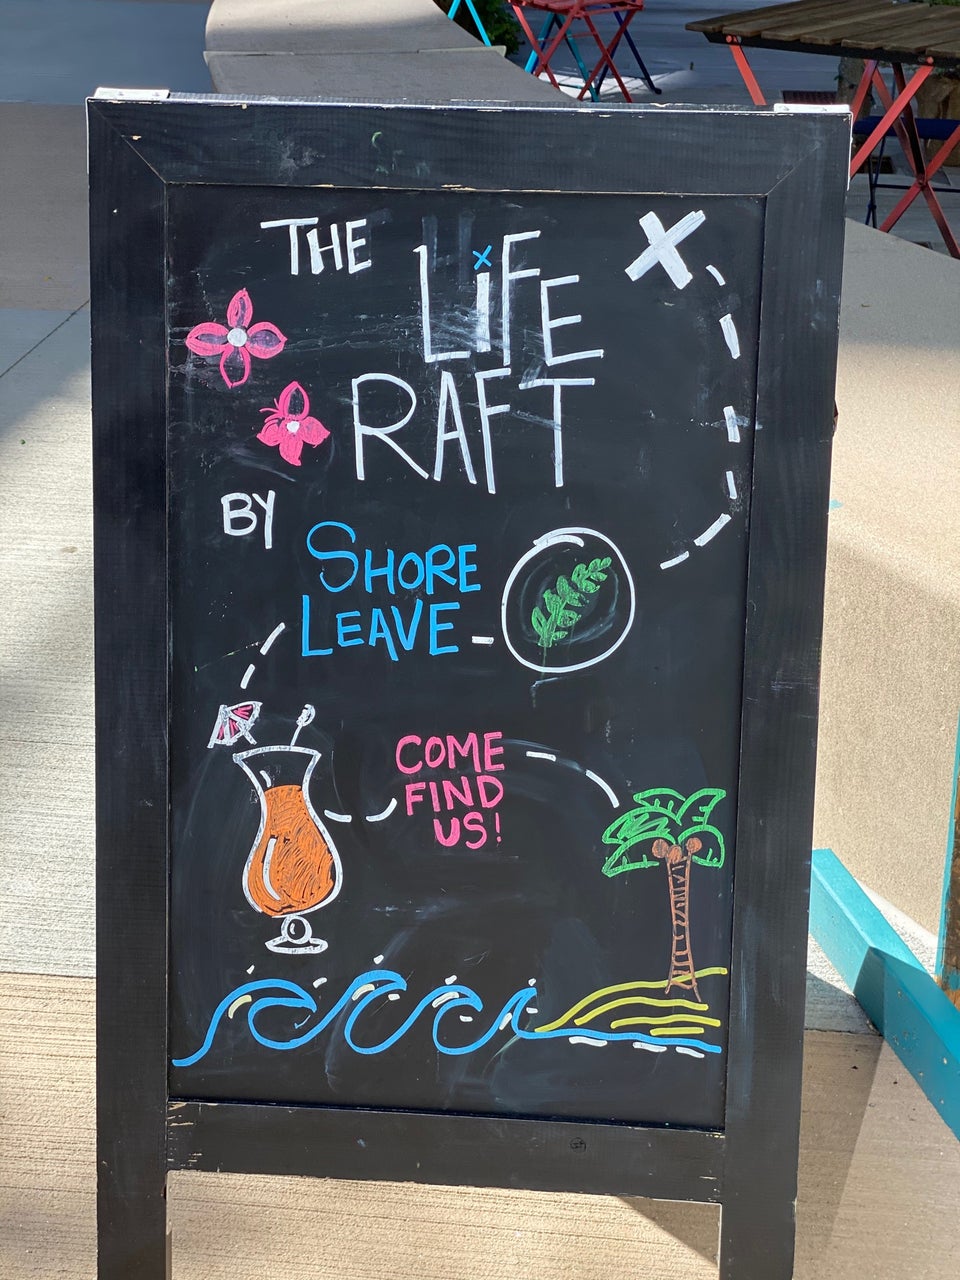 THE
LiFE
RAFT
BY
SHORE
LEAVE
COME
FIND
US!